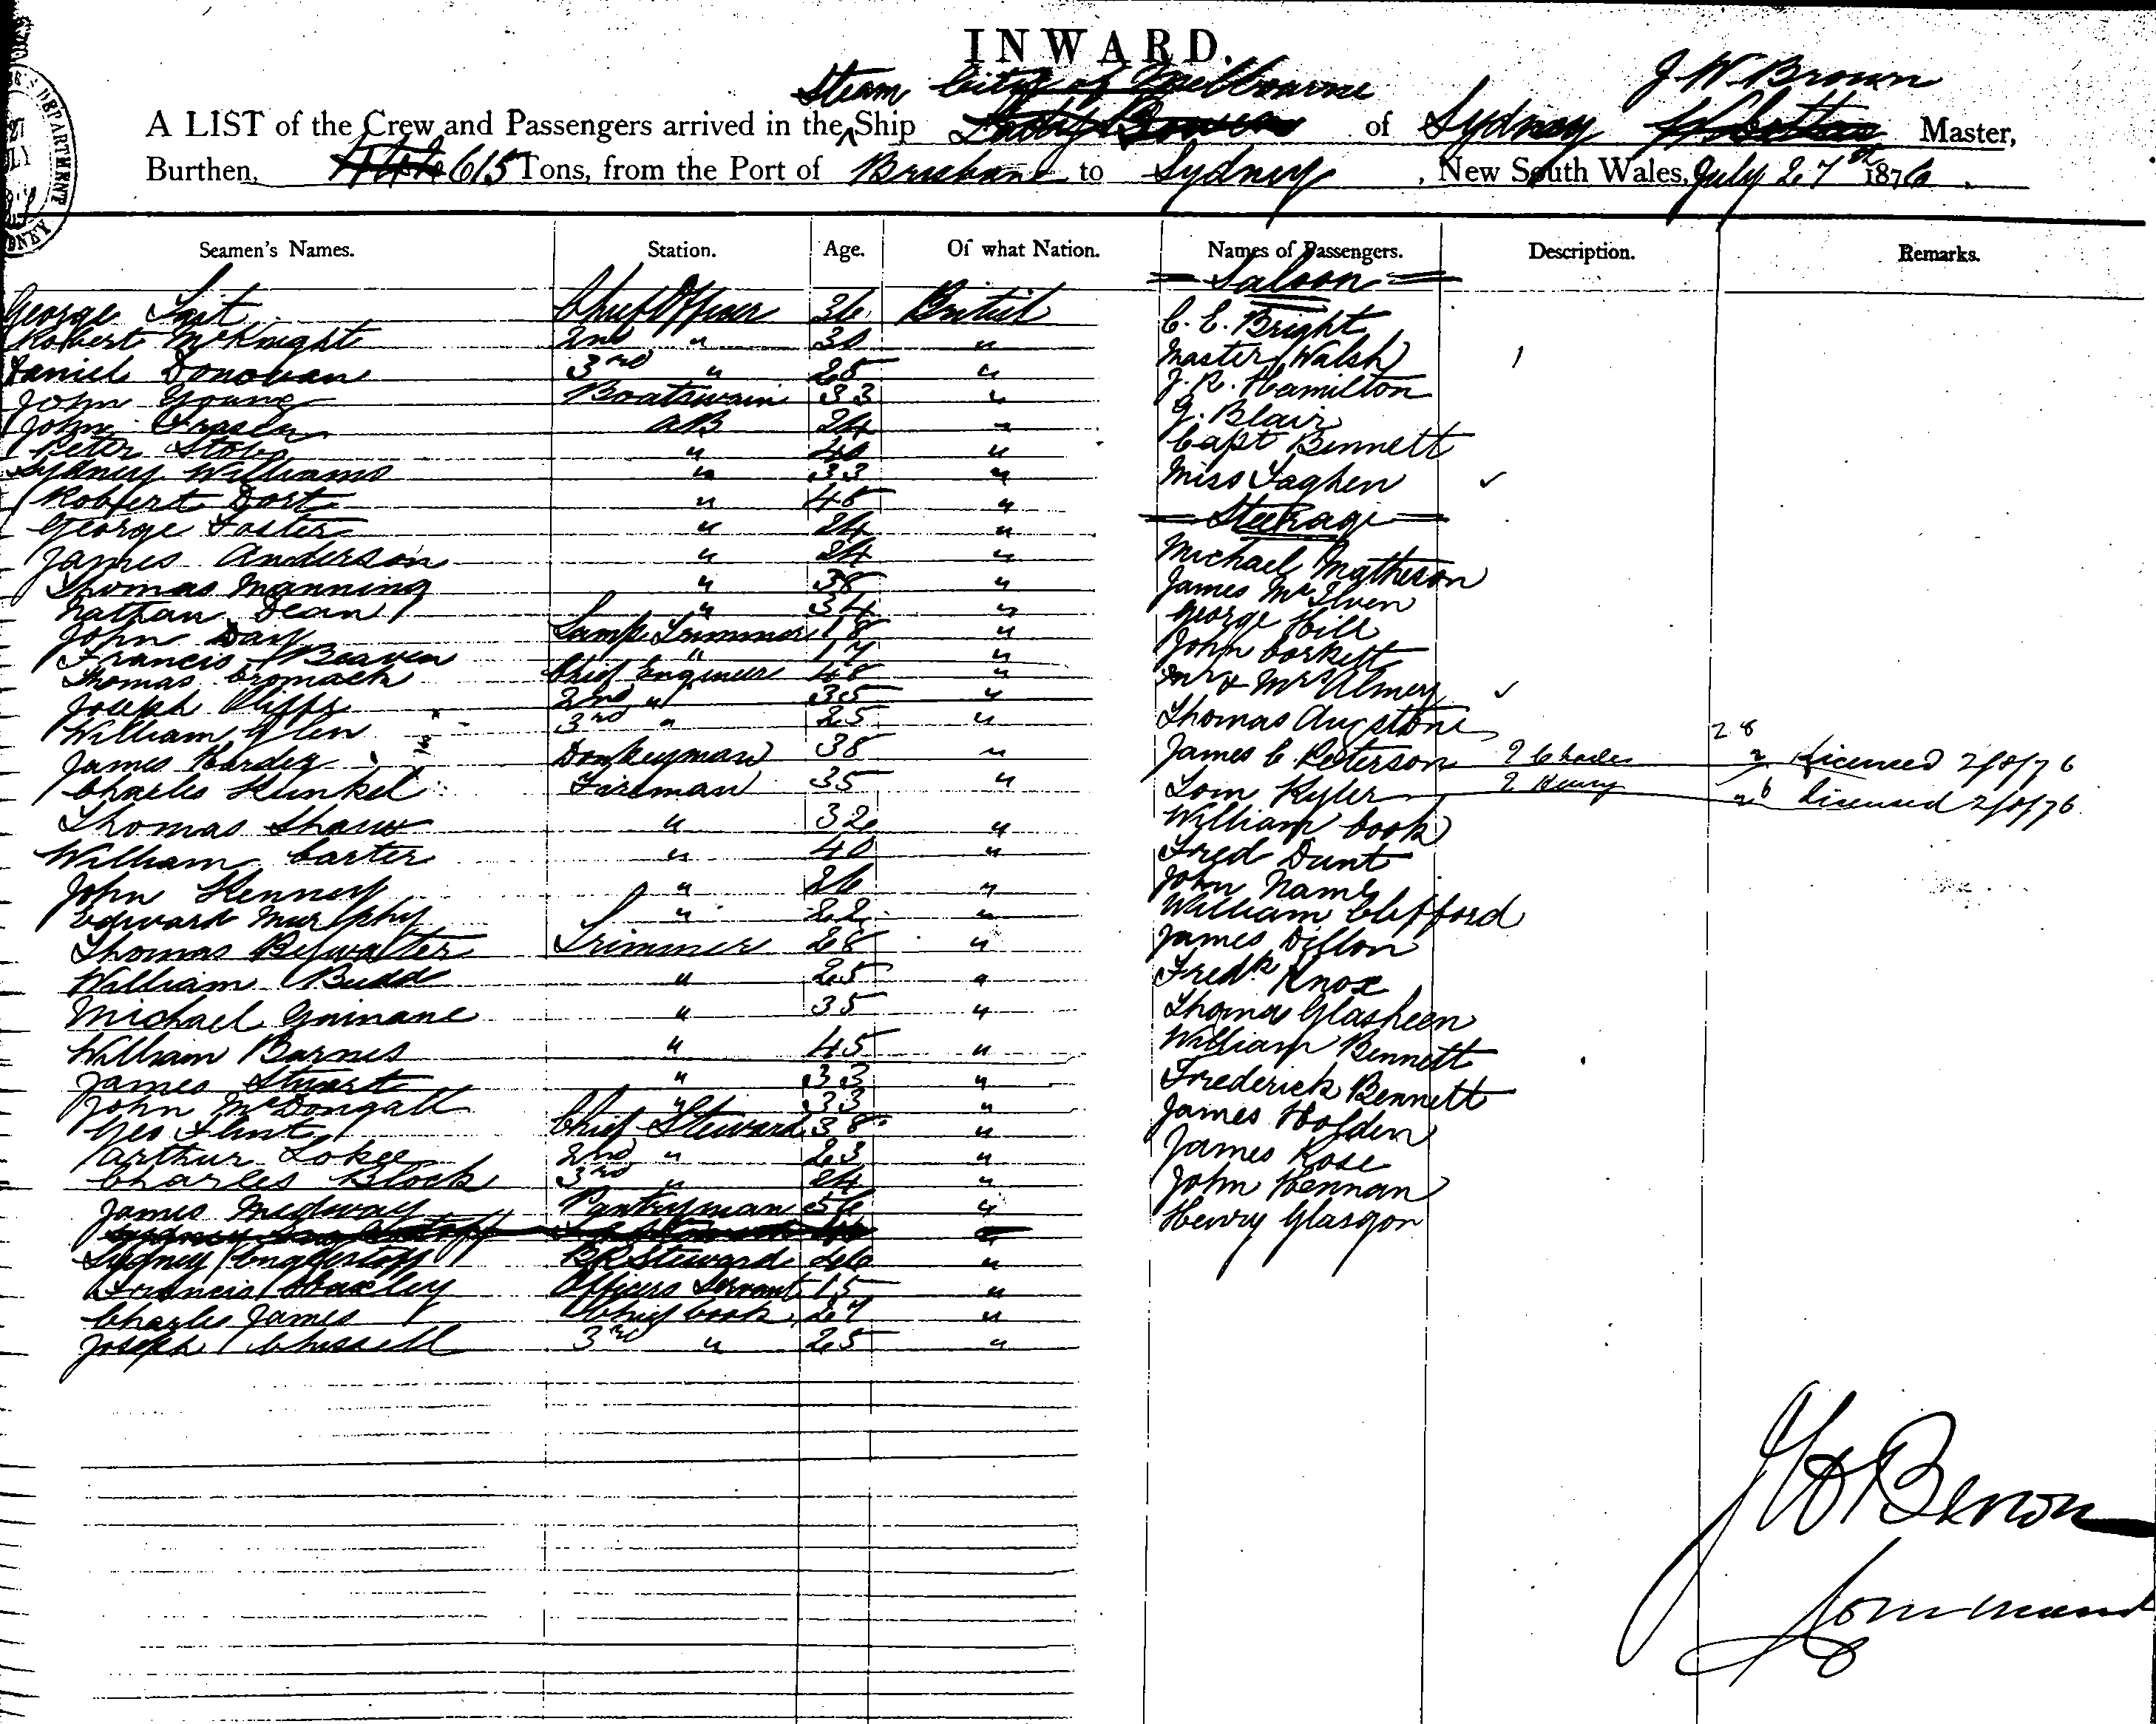 INWARD.
Steam City of Melbourne J W Brown
A LIST of the Crew and Passengers arrived in the Ship Lady Bowen of Sydney Master,
Burthen, 615 Tons, from the Port of Brisbane to Sydney, New South Wales, July 27th 1876.
Seamen's Names. Station. Age. Of what Nation. Names of Passengers. Description. Remarks.
= Saloon =
George Tait Chief Officer 36 British C. E. Bright
Robert McKnight 2nd " 30 " Master Walsh 1
Daniel Donovan 3rd " 25 " J. R. Hamilton
John Young Boatswain 33 " G. Blair
John Fraser AB 24 " Capt Bennett
Peter Stob " 40 "
Sydney Williams " 33 " Miss Laghen ✓
Robert Dort " 48 "
George Foster " 24 " = Steerage =
James Anderson " 24 " Michael Matheson
Thomas Manning " 38 " James McIlven
Nathan Dean " 34 " George Hill
John Day Lamp Trimmer 18 " John Corkett
Francis Beaven " 17 "
Thomas Cromack Chief Engineer 48 " Mr & Mrs Almery ✓
Joseph Cliffe 2nd " 35 "
William Glen 3rd " 25 " Thomas Augstone
James Harder Donkeyman 38 " James C. Peterson ? Charles 28 Licensed 2/8/76
Charles Kunkel Fireman 35 " Tom Kyler ? Henry Licensed 2/8/76
Thomas Shaw " 32 " William Cook
William Carter " 40 " Fred Dunt
John Kenney " 26 " John Name
Edward Murphy " 22 " William Clifford
Thomas Bywater Trimmer 28 " James Dillon
William Budd " 25 " Fredk Knox
Michael Guinane " 35 " Thomas Glasheen
William Barnes " 45 " William Bennett
James Stuart " 33 " Frederick Bennett
John McDongall " 33 " James Holden
Geo Flint Chief Steward 38 "
Arthur Lokee 2nd " 23 " James Rose
Charles Block 3rd " 24 " John Hennan
James Medway Pantryman 56 " Henry Glasgon
Sydney Englestoff BR Steward "
Francis Oaxley Officers Servant 15 "
Charles James Chief Cook 27 "
Joseph Chissell 3rd " 25 "